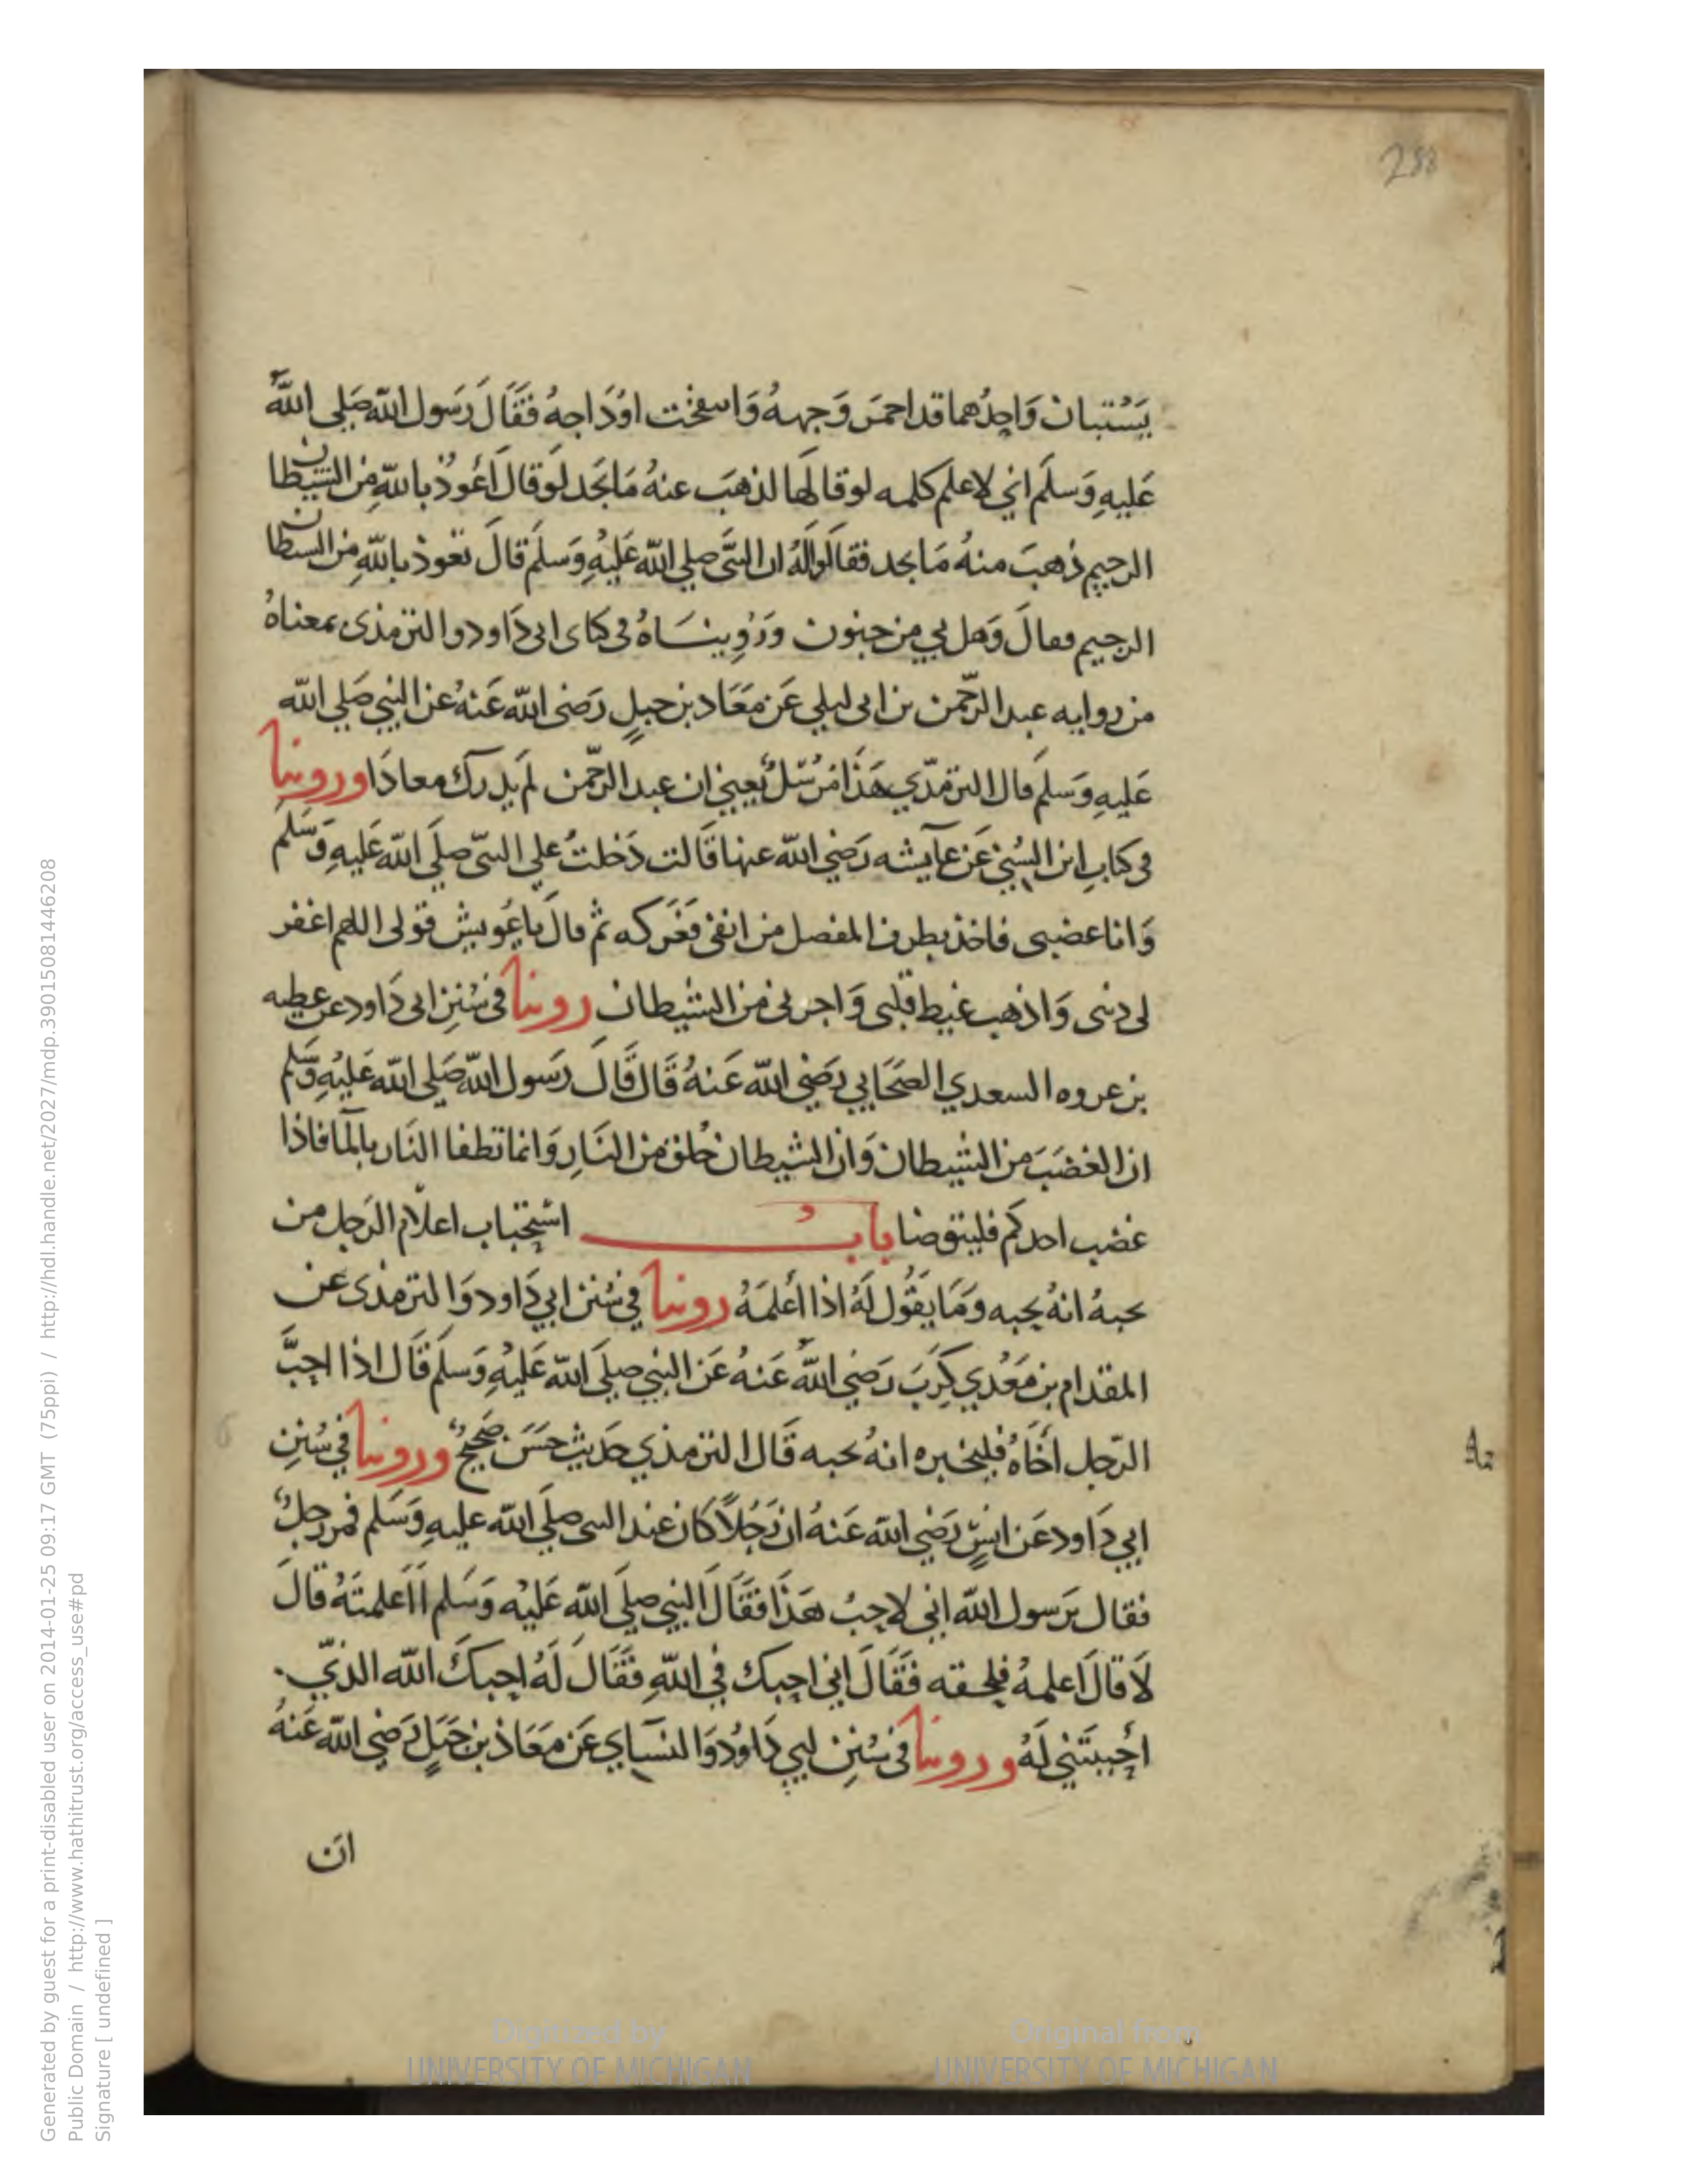 288
يَسْتبان وَاحِدُهما قد احمرَ وَجهه وَاسفخت اوْدَاجهُ فقَالَ رَسول الله صَلى الله
عَليهِ وَسلمَ اني لاعلم كلمه لوقالها لذهبَ عنهُ مَا يَجد لوقالَ أعُوذ بالله مِن الشيطان
الرجيم ذهبَ منهُ مَا يجد فقالوا لهُ ان النبَّى صلى الله عَليْهِ وَسلمَ قالَ تعوذ بالله مِن السطان
الرجيم فقالَ وَهل بي مِن جنون وَرُوينَاهُ فى كتابى ابى دَاود والترمذى بمعناهُ
من روايه عبد الرّحمن بن ابى ليلي عَن مَعَاذ بن جبلٍ رَضى الله عَنهُ عن النبي صَلي الله
عَليهِ وَسَلمَ قال الترمذّي هَذَا مُرسَلٌ يَعني ان عبد الرحّمن لم يدرك معاذَا وروينا
فى كتابِ ابن السُني عَن عآيشه رَضي الله عنها قَالت دَخلتُ علي النبّى صلَي الله عَليهِ وَسَّلمَ
وَانا غضبى فاخذ بطرف المفصل من انفى فعَركه ثم قالَ يا عُويش قولى اللهم اغفر
لى ذنبى وَاذهب غيط قلبى وَاجرنى مِن الشيطان روينا فى سُنِن ابى دَاود عن عطيه
بن عروه السعدي الصحَابي رَضي الله عَنهُ قَال قَالَ رَسول الله صَلي الله عَليْهِ وَسَلم
ان الغضبَ مِن الشيطان وَان الشيطان خُلق مِن النَارِ وَانما تطفا النَار بالمآ فاذا
غضب احدكم فليتوضا بابُ استحباب اعلام الرَجل من
يحبهُ انهُ يحبه وَمَا يقُول لهُ اذا أعلمَهُ روينا في سُنن ابي دَاود وَالترمذى عن
المقدام بن مَعْدي كَرِبَ رَضي اللهُ عَنهُ عَن النبي صلَي الله عَليْهِ وَسَلم قَال اذا احبَّ
الرّجل أخَاهُ فليخبره انهُ يحبه قَال الترمذي حَديث حَسَن صَحيحٌ وروينا في سُنِن
ابي دَاود عَن انسٍ رَضي الله عَنهُ ان رَجُلاً كان عند النبى صلَي الله عليهِ وَسَلم فمر رجلٌ
فقال يرَسول الله اني لاحبُ هَذَا فقَالَ النبي صلَي الله عَليْه وَسَلم أَاَعلمتَهُ قالَ
لَا قالَ اعلمهُ فلحقه فقَالَ اني احبك في اللهِ فقَال لَهُ احبكَ الله الذيّ
أحببتَني لَهُ وروينا فى سُنِن ابي دَاوُد وَالنسَاي عَن مَعَاذ بن جَبَلٍ رَضي الله عَنهُ
ان
Generated by guest for a print-disabled user on 2014-01-25 09:17 GMT (75ppi) / http://hdl.handle.net/2027/mdp.39015081446208
Public Domain / http://www.hathitrust.org/access_use#pd
Signature [ undefined ]
Digitized by UNIVERSITY OF MICHIGAN
Original from UNIVERSITY OF MICHIGAN